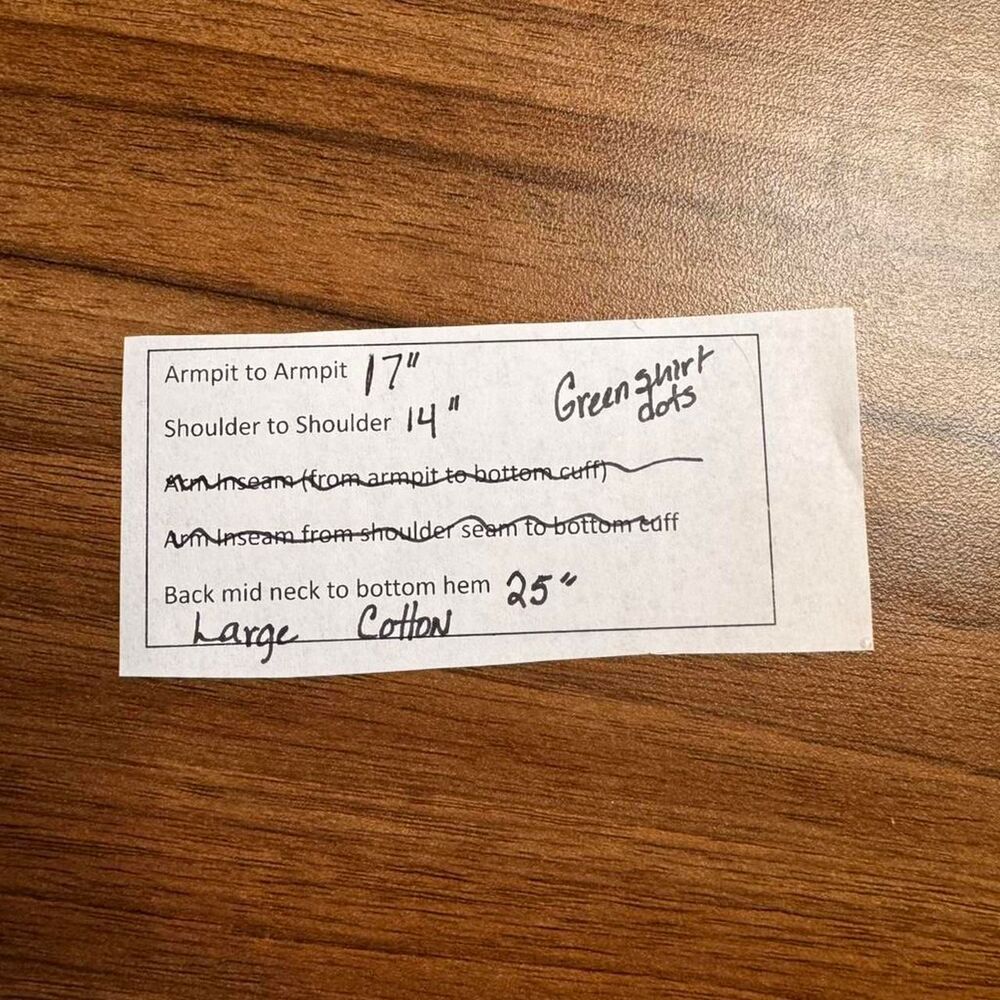 Armpit to Armpit 17"
Green shirt
dots
Shoulder to Shoulder 14"
Arm Inseam (from armpit to bottom cuff)
Arm Inseam from shoulder seam to bottom cuff
Back mid neck to bottom hem 25"
Large Cotton